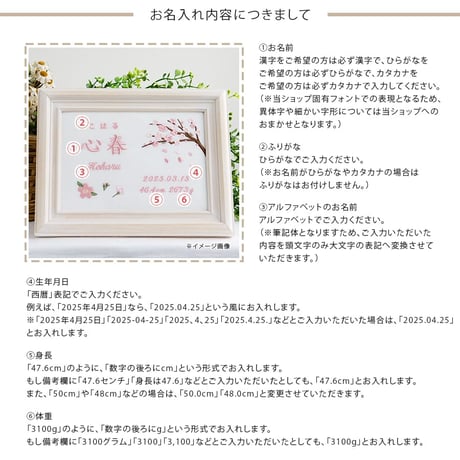 お名入れ内容につきまして
②
こはる
①
心春
Koharu
③
2025.03.15
④
46.4cm 2673g
⑤
⑥
※イメージ画像
①お名前
漢字をご希望の方は必ず漢字で、ひらがなを
ご希望の方は必ずひらがなで、カタカナを
ご希望の方は必ずカタカナで入力してください。
（※当ショップ固有フォントでの表現となるため、
異体字や細かい字形については当ショップへの
おまかせとなります。）
②ふりがな
ひらがなでご入力ください。
（※お名前がひらがなやカタカナの場合は
ふりがなはお付けしません。）
③アルファベットのお名前
アルファベットでご入力ください。
（※筆記体となりますため、ご入力いただいた
内容を頭文字のみ大文字の表記へ変換させて
いただきます。）
④生年月日
「西暦」表記でご入力ください。
例えば、「2025年4月25日」なら、「2025.04.25」という風にお入れします。
※「2025年4月25日」「2025-04-25」「2025、4、25」「2025.4.25.」などとご入力いただいた場合は、「2025.04.25」
とお入れします。
⑤身長
「47.6cm」のように、「数字の後ろにcm」という形式でお入れします。
もし備考欄に「47.6センチ」「身長は47.6」などとご入力いただいたとしても、「47.6cm」とお入れします。
また、「50cm」や「48cm」などの場合は、「50.0cm」「48.0cm」と変更させていただきます。
⑥体重
「3100g」のように、「数字の後ろにg」という形式でお入れします。
もし備考欄に「3100グラム」「3100」「3,100」などとご入力いただいたとしても、「3100g」とお入れします。